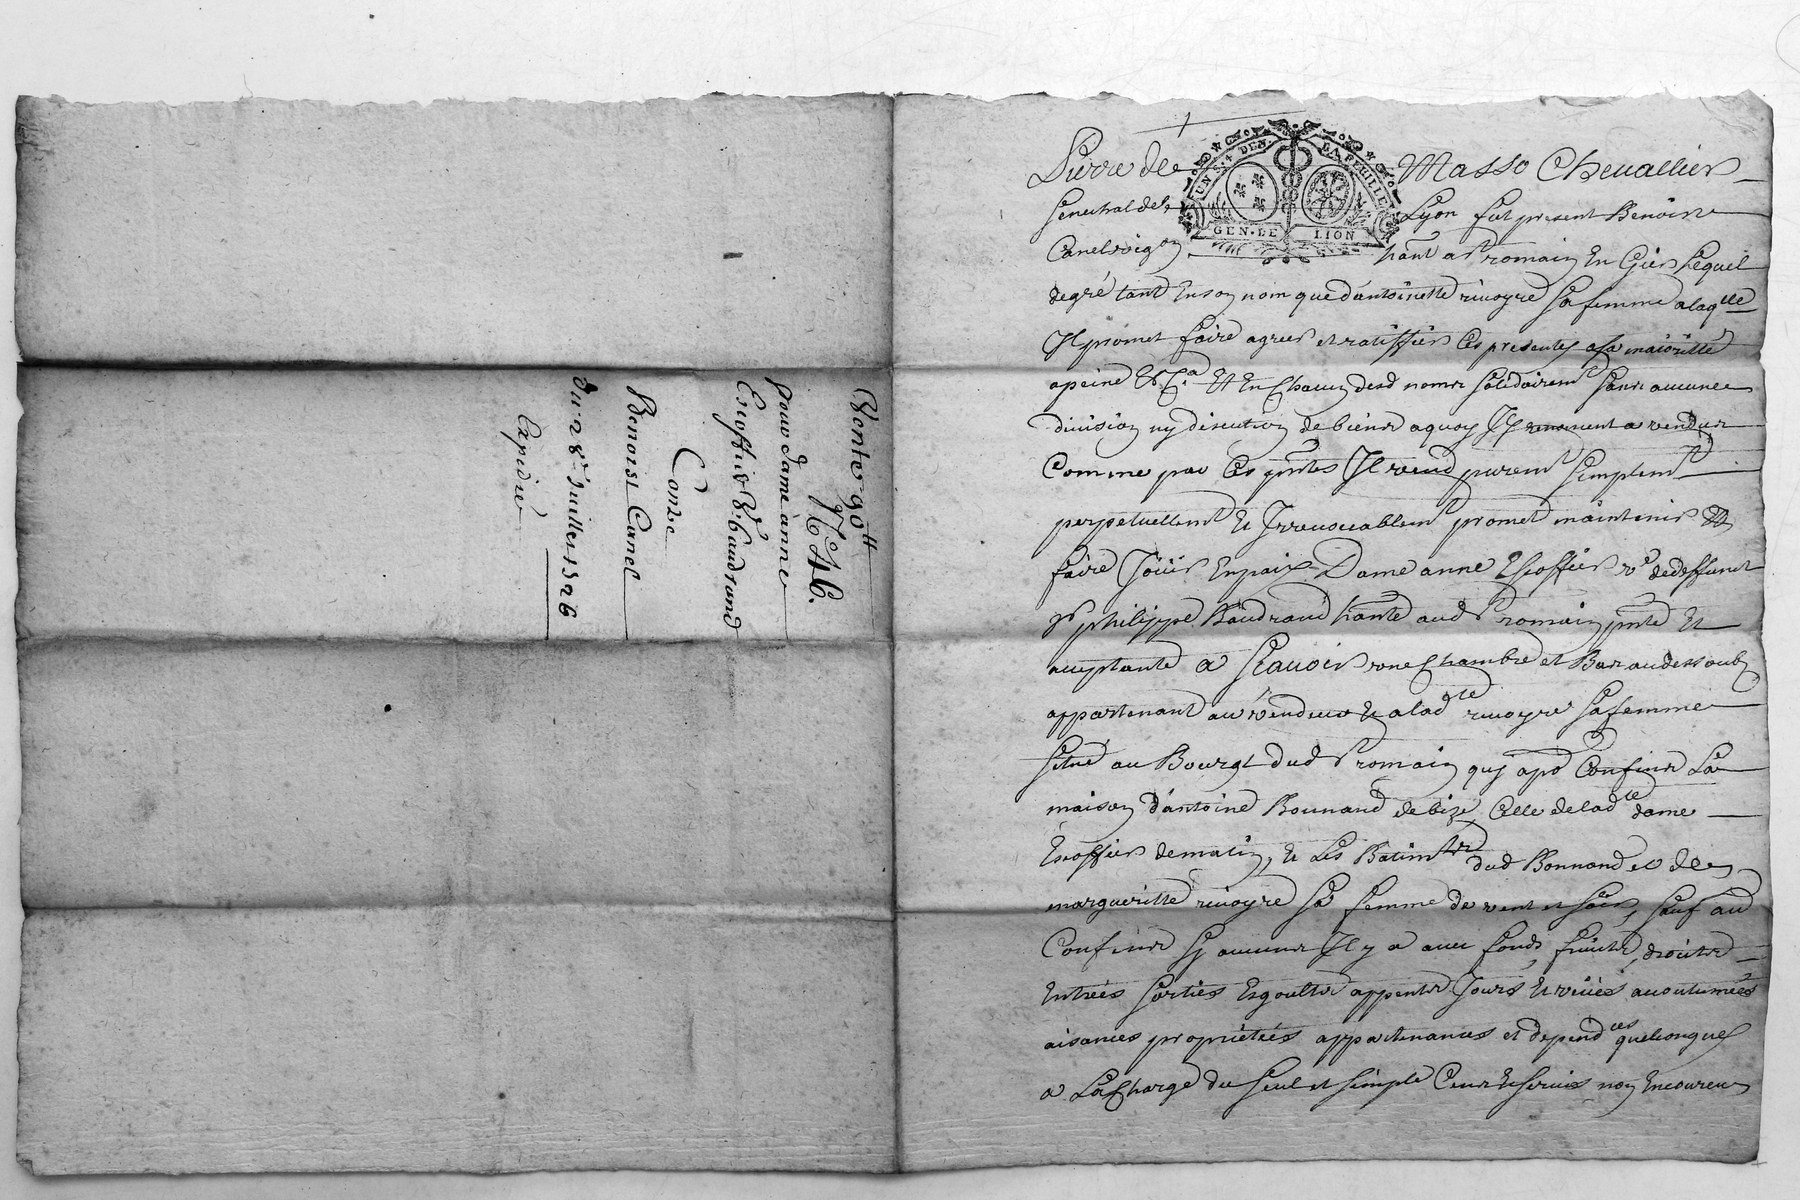 Vente 90tt
N.º 46.
pour dame anne
Escoffier vve. baudrand
Contre
Benoist Canel
du 28e juillet 1726
Expedié
UN S. 4 DEN. LA FEUILLE
GEN. DE LION
Pierre de Masso Chevallier
senechal de Lyon fut present Benoist
Canel vigon hant a St romain En Gier Lequel
de gré tant En son nom que d'antoinette rivoyre sa femme a laqlle
Il promet faire agreer et ratiffier Ces presentes a sa maioritté
a peine &Ca. Et En Chacun desd noms solidairemt sans aucune
division ny discution de biens a quoy Il renoncent a vendu
Comme par Ces pntes Il vend puremt simplemt
perpetuellemt et Irrevocablemt promet maintenir Et
faire Joüir En paix Dame anne Escoffier ve de deffunct
sr philippe Baudrand hante aud St romain pnte Et
acceptante a Scavoir une Chambre et Bas au dessoubz
appartenant au vendeur et a lad te rivoyre sa femme
situé au Bourg dud St romain qui a pr Confins La
maison d'antoine Bonnand de bize, Celle de lad te dame
Escoffier de matin, et Les Batimts dud Bonnand et de
margueritte rivoyre sa femme de vent et soir, sauf aud
Confins sy aucuns Il y a avec fonds, fruits, droits
Entrées sorties Esgoults appents Jours Et vües acoutumées
aisances proprietés appartenances et dependces quelconques
a La Charge du seul et simple Cens Et servis non Encourus